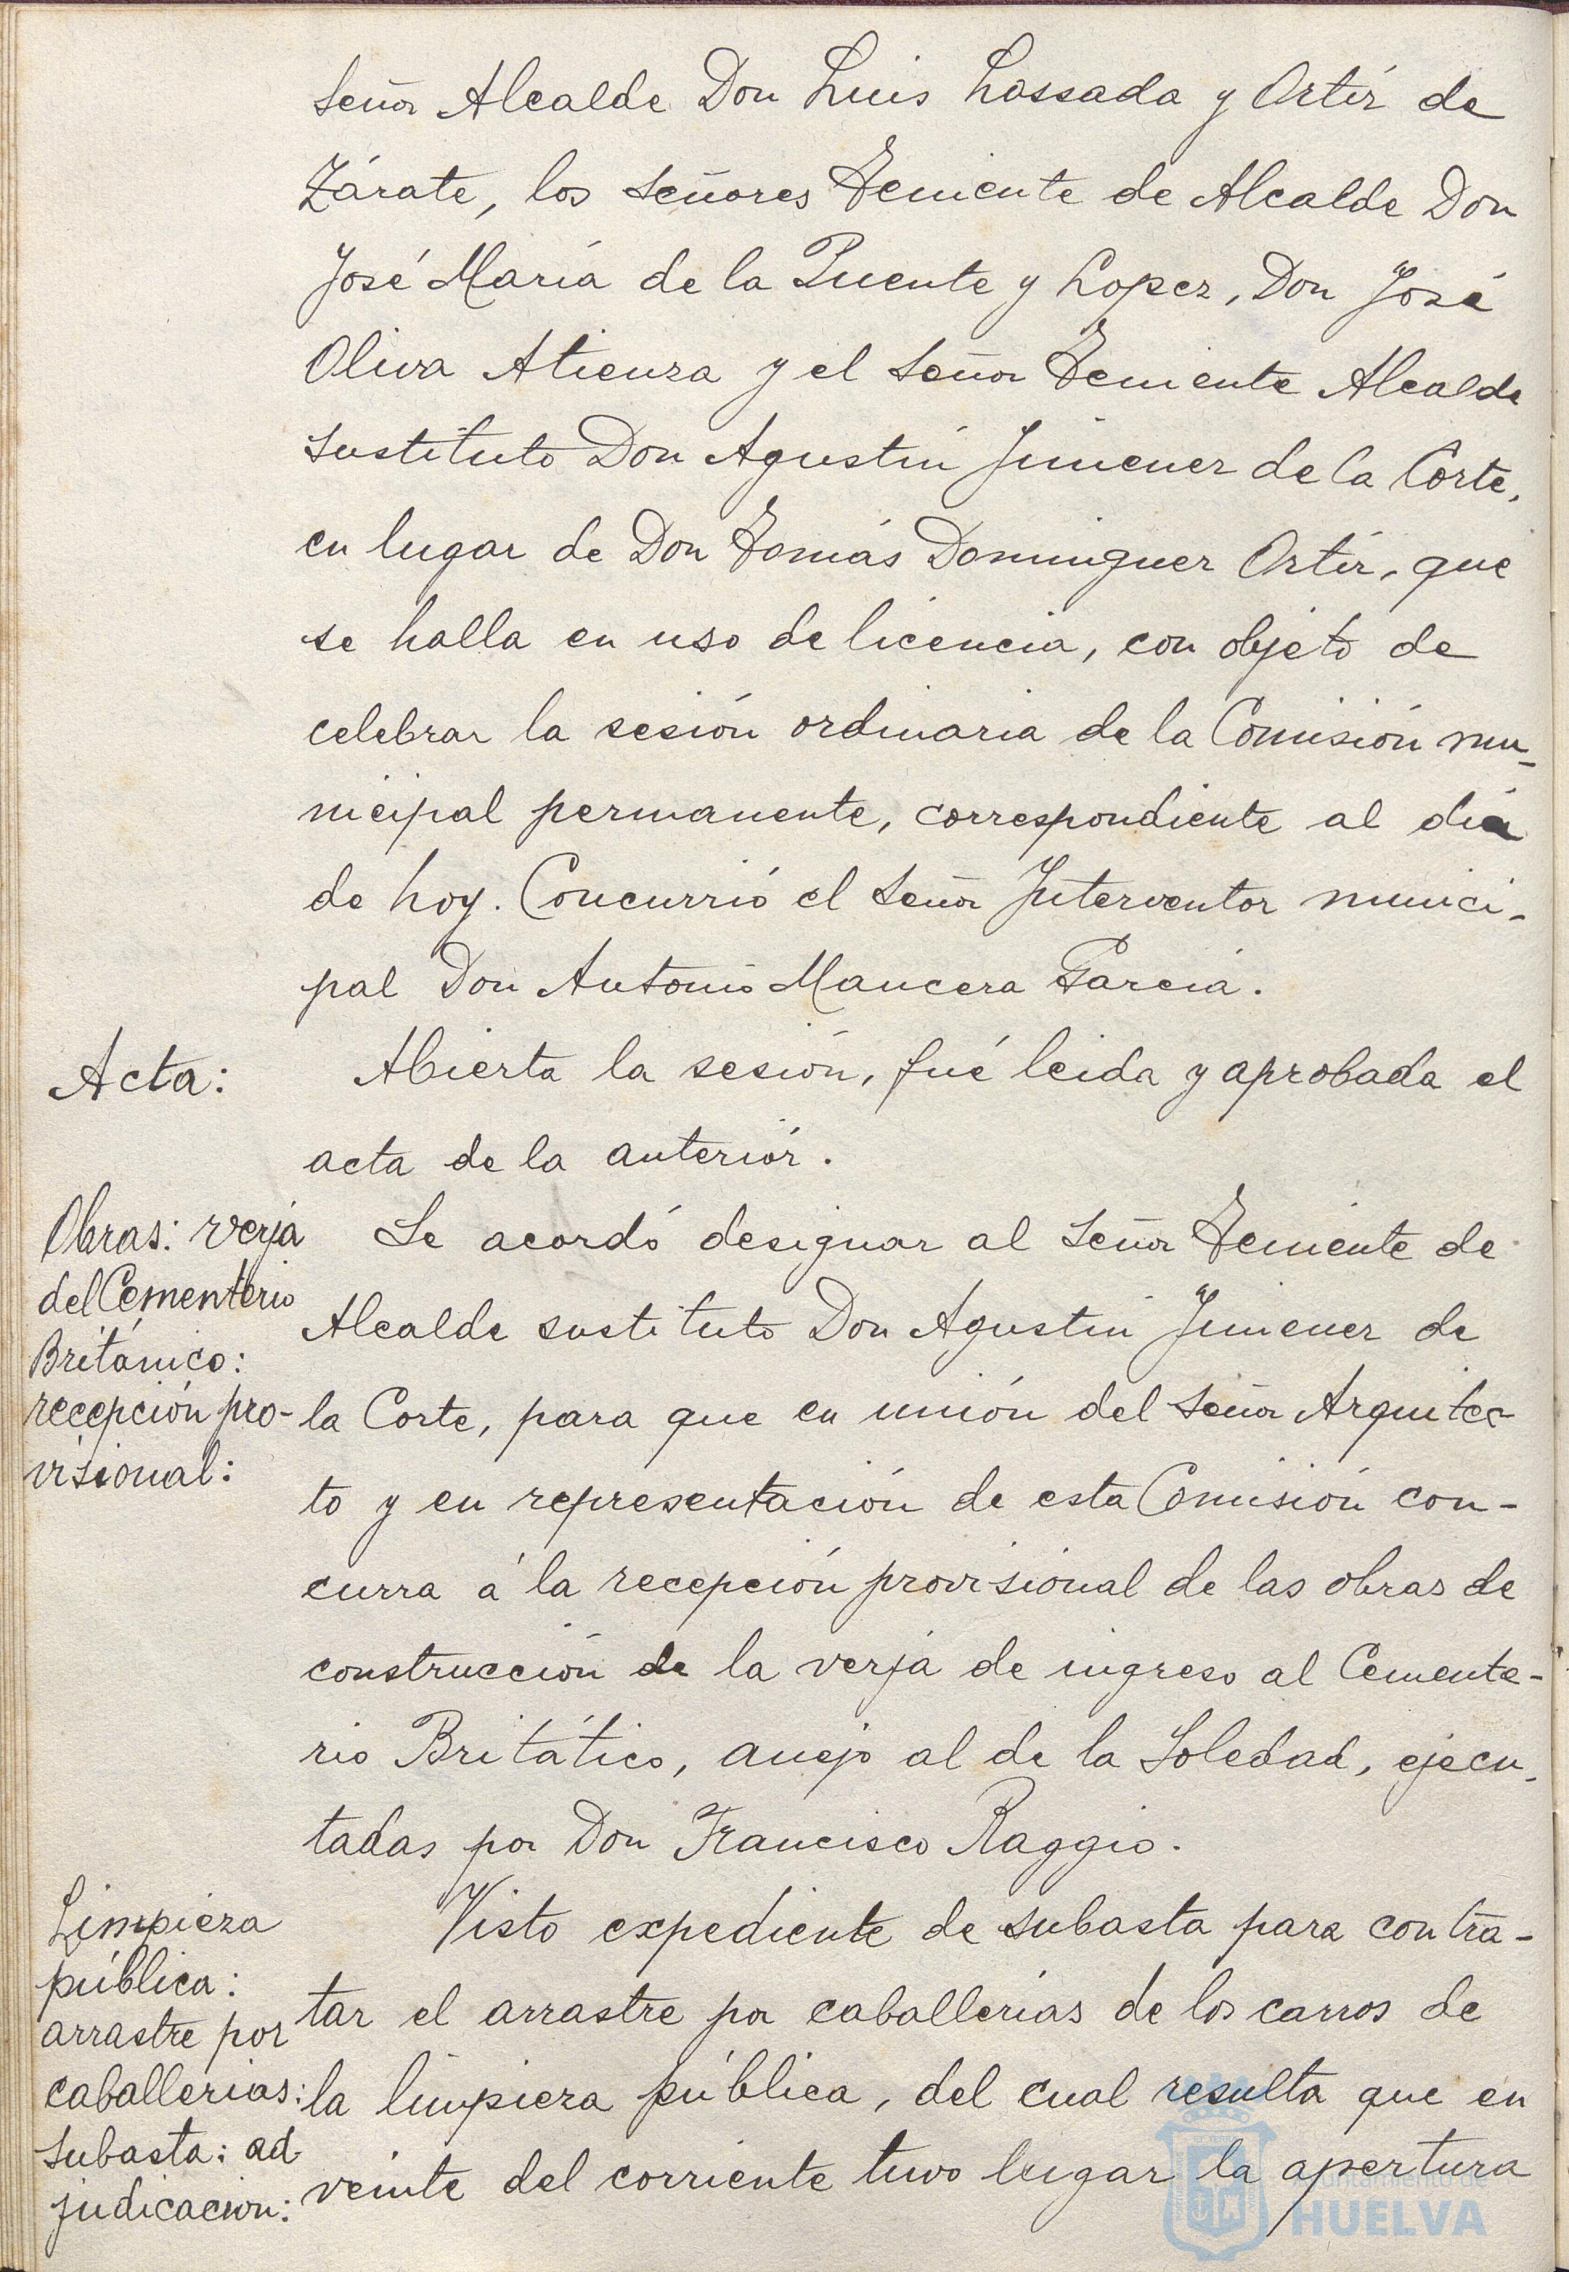 Señor Alcalde Don Luis Lossada y Ortiz de
Zárate, los señores Teniente de Alcalde Don
José María de la Puente y Lopez, Don José
Oliva Atienza y el señor Teniente Alcalde
sustituto Don Agustín Jimenez de la Corte,
en lugar de Don Tomás Dominguez Ortiz, que
se halla en uso de licencia, con objeto de
celebrar la sesión ordinaria de la Comisión mu-
nicipal permanente, correspondiente al día
de hoy. Concurrió el señor Interventor munici-
pal Don Antonio Mancera García.
Acta:
Abierta la sesión, fué leida y aprobada el
acta de la anteriór.
Obras: verja
del Cementerio
Británico:
recepción pro-
visional:
Se acordó designar al señor Teniente de
Alcalde sustituto Don Agustín Jimenez de
la Corte, para que en unión del señor Arquitec-
to y en representación de esta Comisión con-
curra á la recepción provisional de las obras de
construcción de la verja de ingreso al Cemente-
rio Britático, anejo al de la Soledad, ejecu-
tadas por Don Francisco Raggio.
Limpieza
pública:
arrastre por
caballerias:
subasta: ad-
judicacion:
Visto expediente de subasta para contra-
tar el arrastre por caballerías de los carros de
la limpieza pública, del cual resulta que en
veinte del corriente tuvo lugar la apertura
Ayuntamiento de
HUELVA